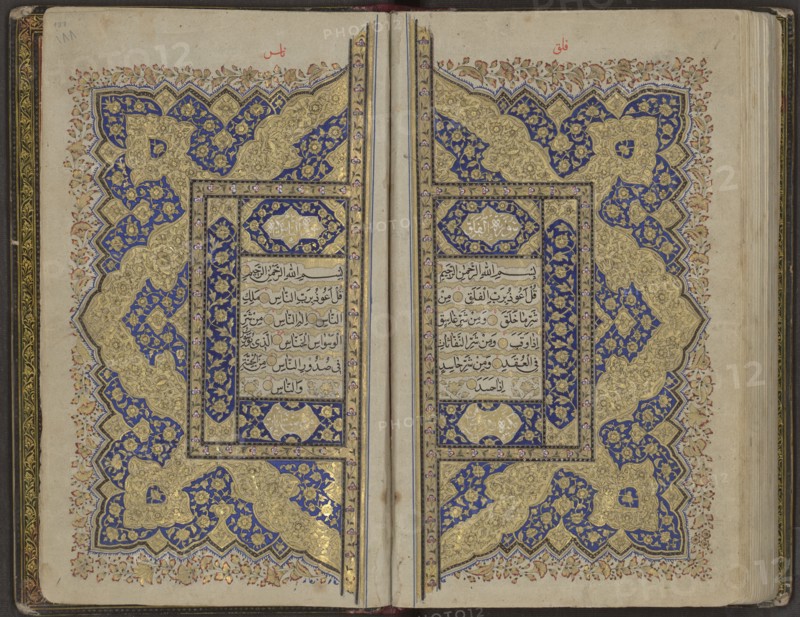 فلق
سورة الفلق
بسم الله الرحمن الرحيم
قل اعوذ برب الفلق من
شر ما خلق ومن شر غاسق
اذا وقب ومن شر النفاثات
فى العقد ومن شر حاسد
اذا حسد
ناس
بسم الله الرحمن الرحيم
قل اعوذ برب الناس ملك
الناس اله الناس من شر
الوسواس الخناس الذى يوسوس
فى صدور الناس من الجنة
والناس
PHOTO12